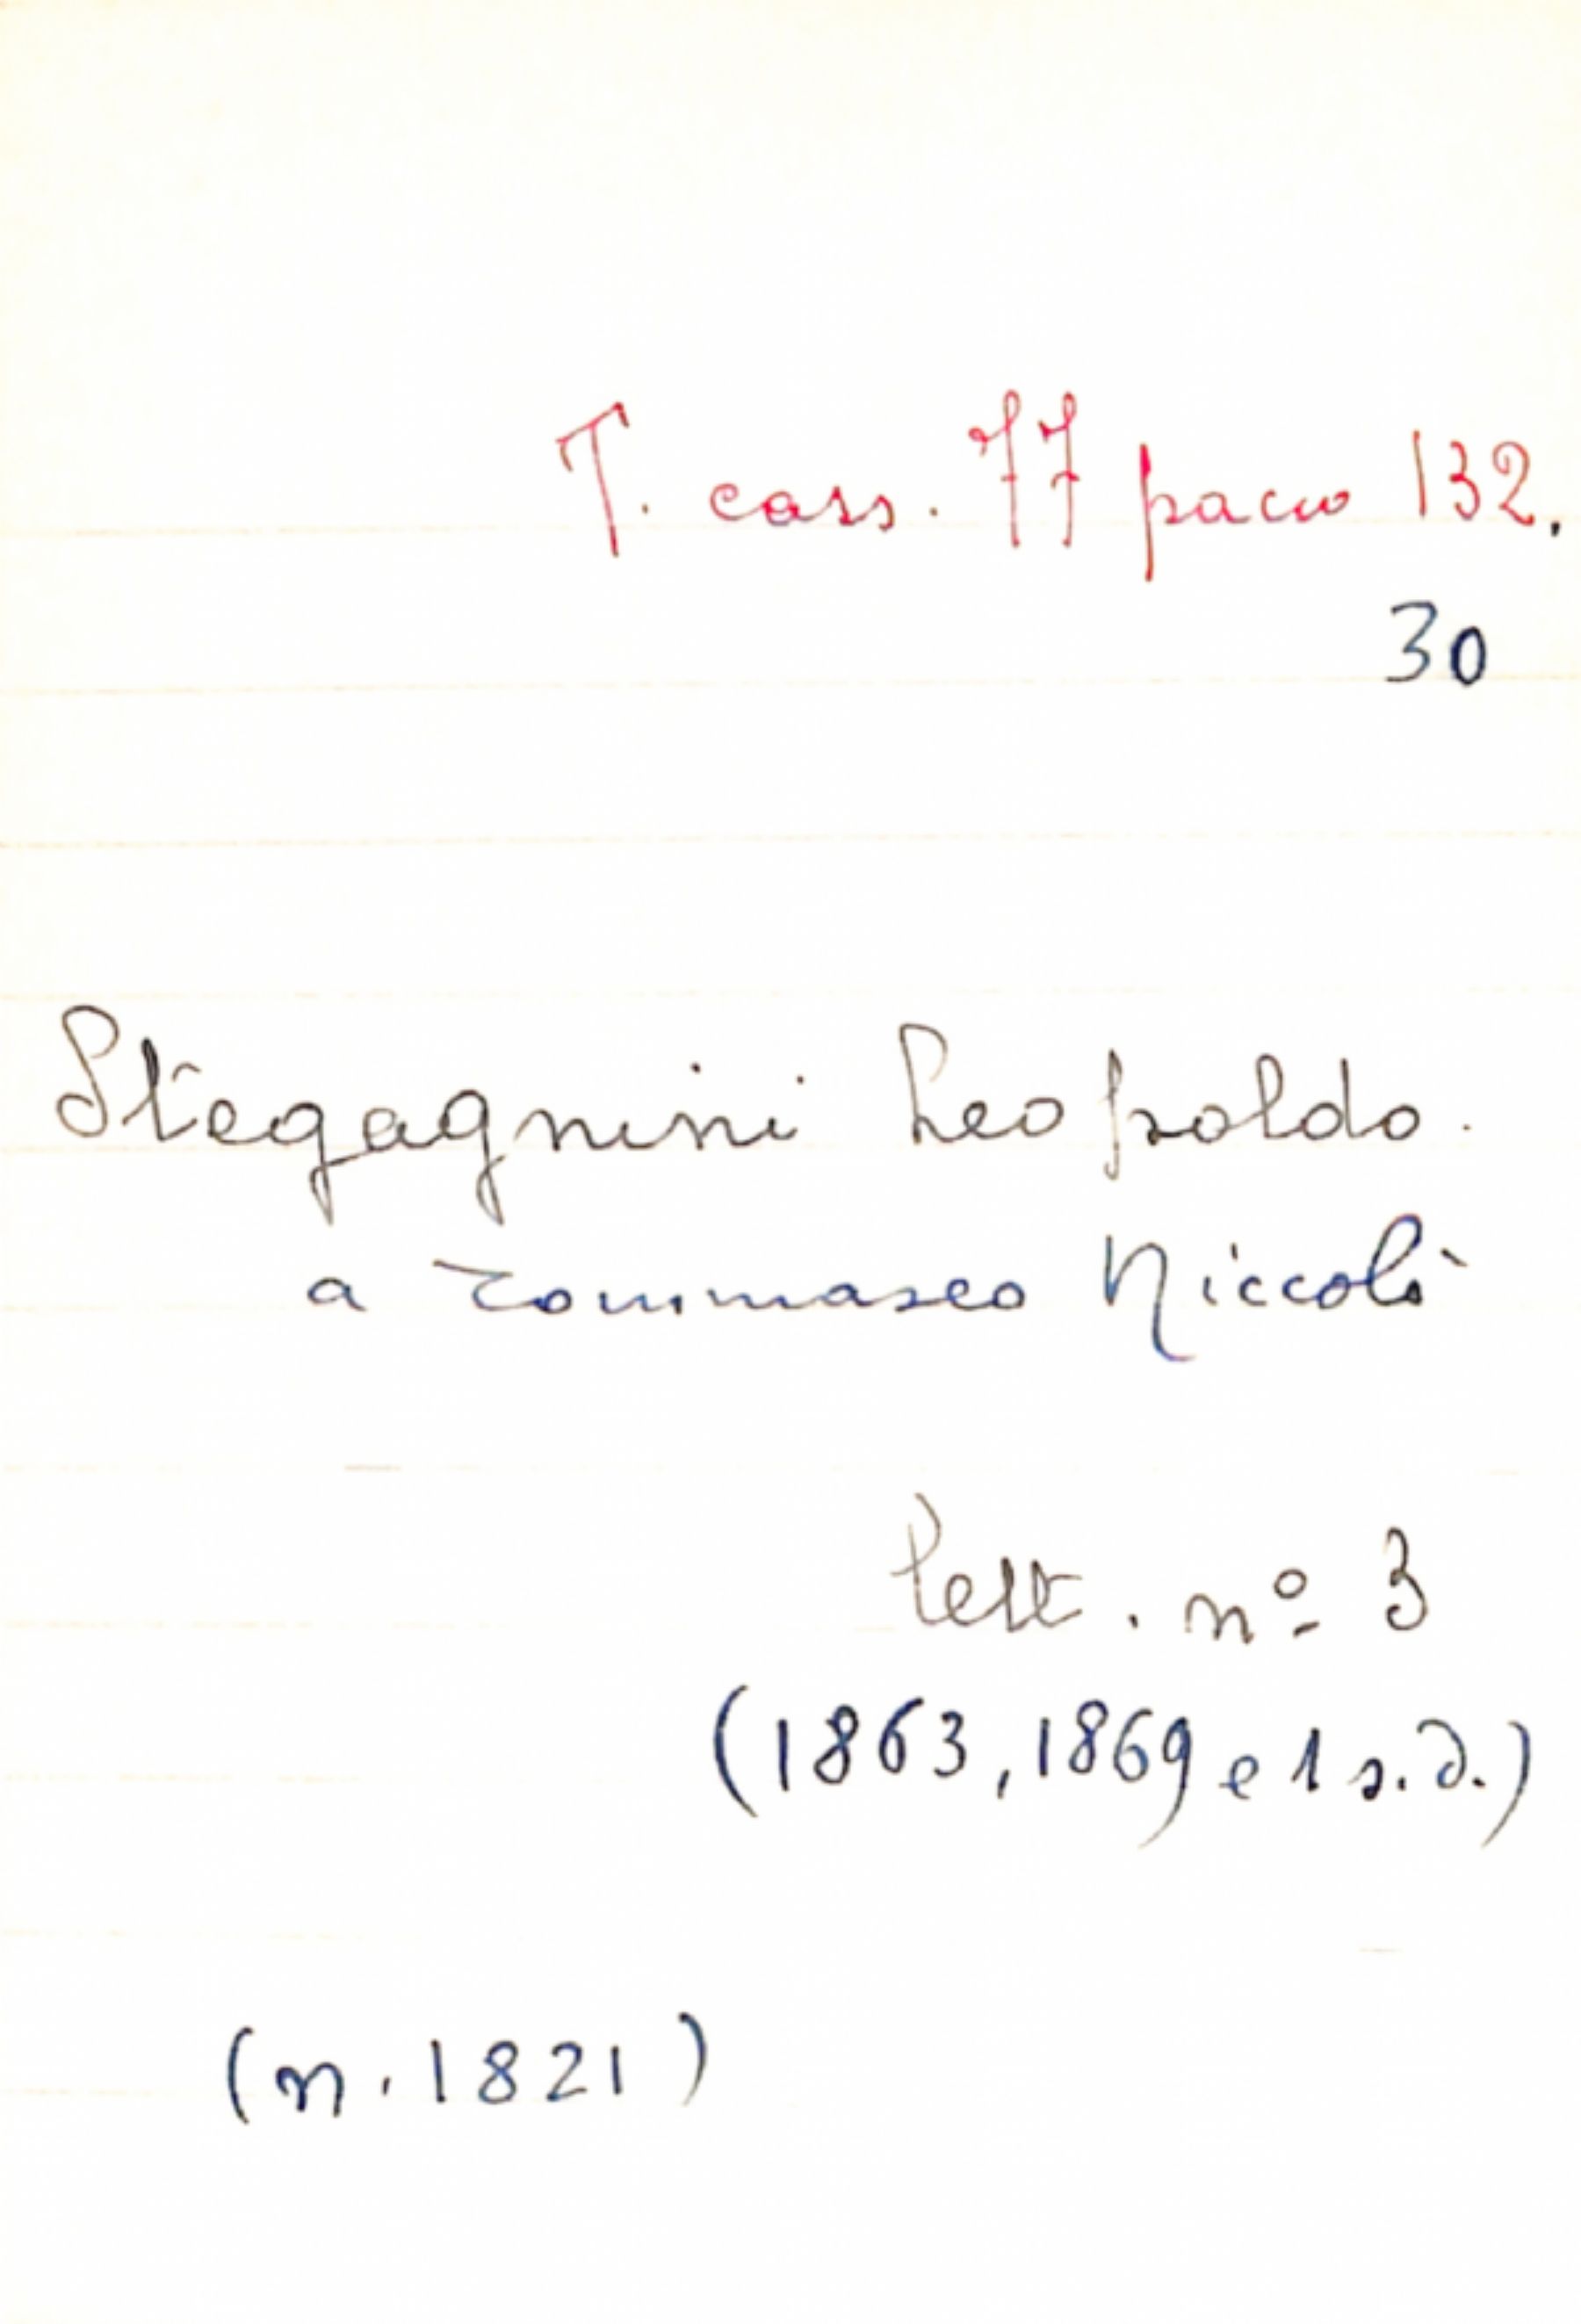 T. cass. 77 pacco 132.
30
Stegagnini Leopoldo.
a Tommaseo Niccolò
lett. nº 3
(1863, 1869 e 1 s.d.)
(n. 1821)